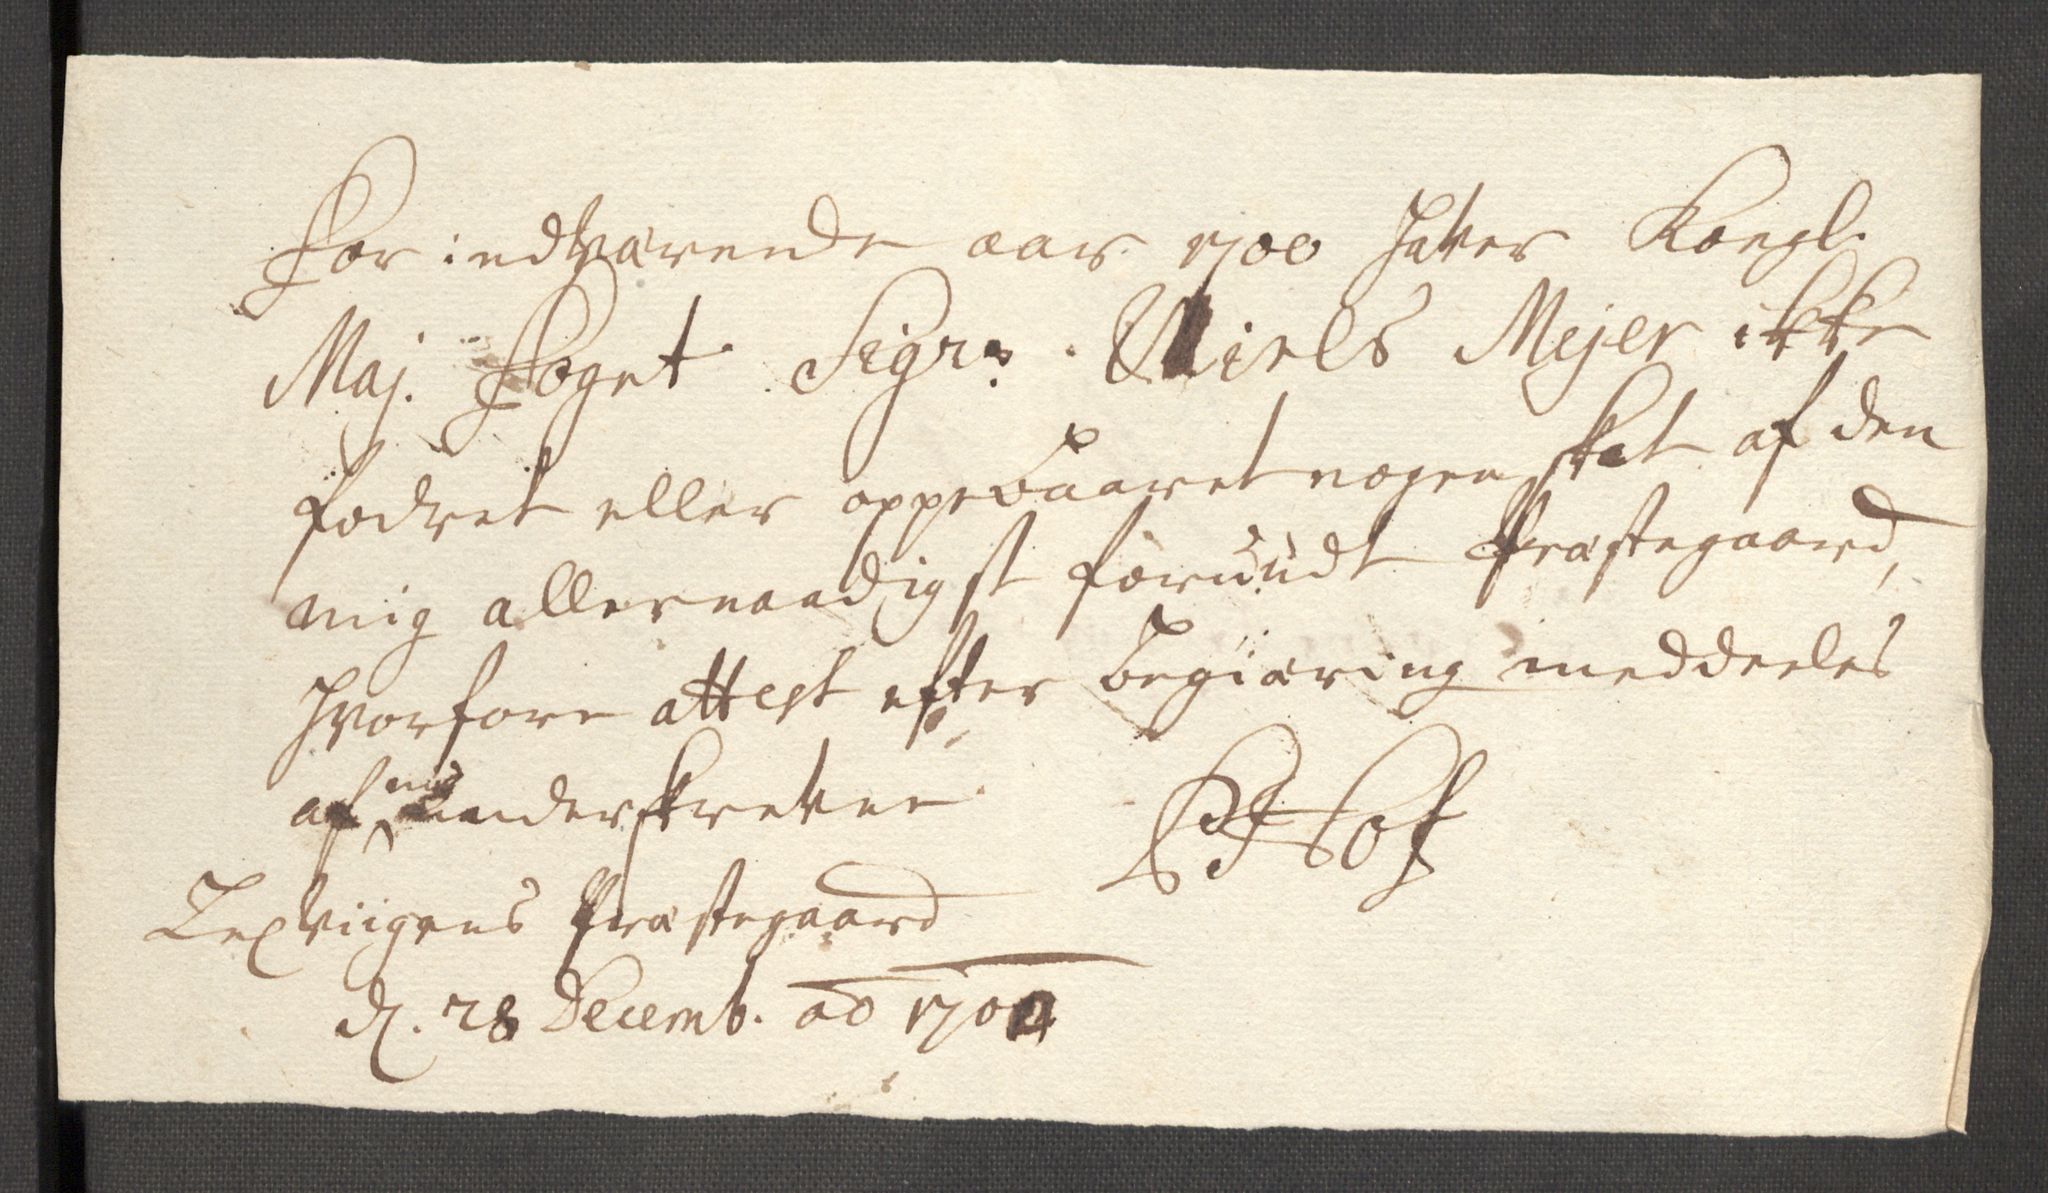 For indværende aar 1700 Haver Kongl.
Maj. Foget Sigr. Niels Mejer ikke
fodret eller oppebaaret nogen skat af den
mig allernaadigst forundt Præstegaard,
Hvorfore attest efter begiæring meddeeles
af mig underskrevne
Hof
Lexviigens Præstegaard
d. 28 Decemb. ao